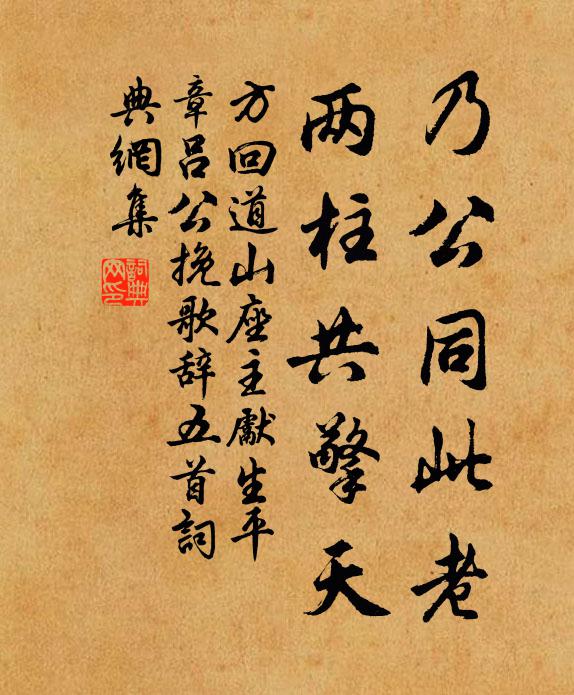 乃公同此老
两柱共擎天
方回道山座主獻生平
章吕公挽歌辞五首詞
典網集
詞典
网印